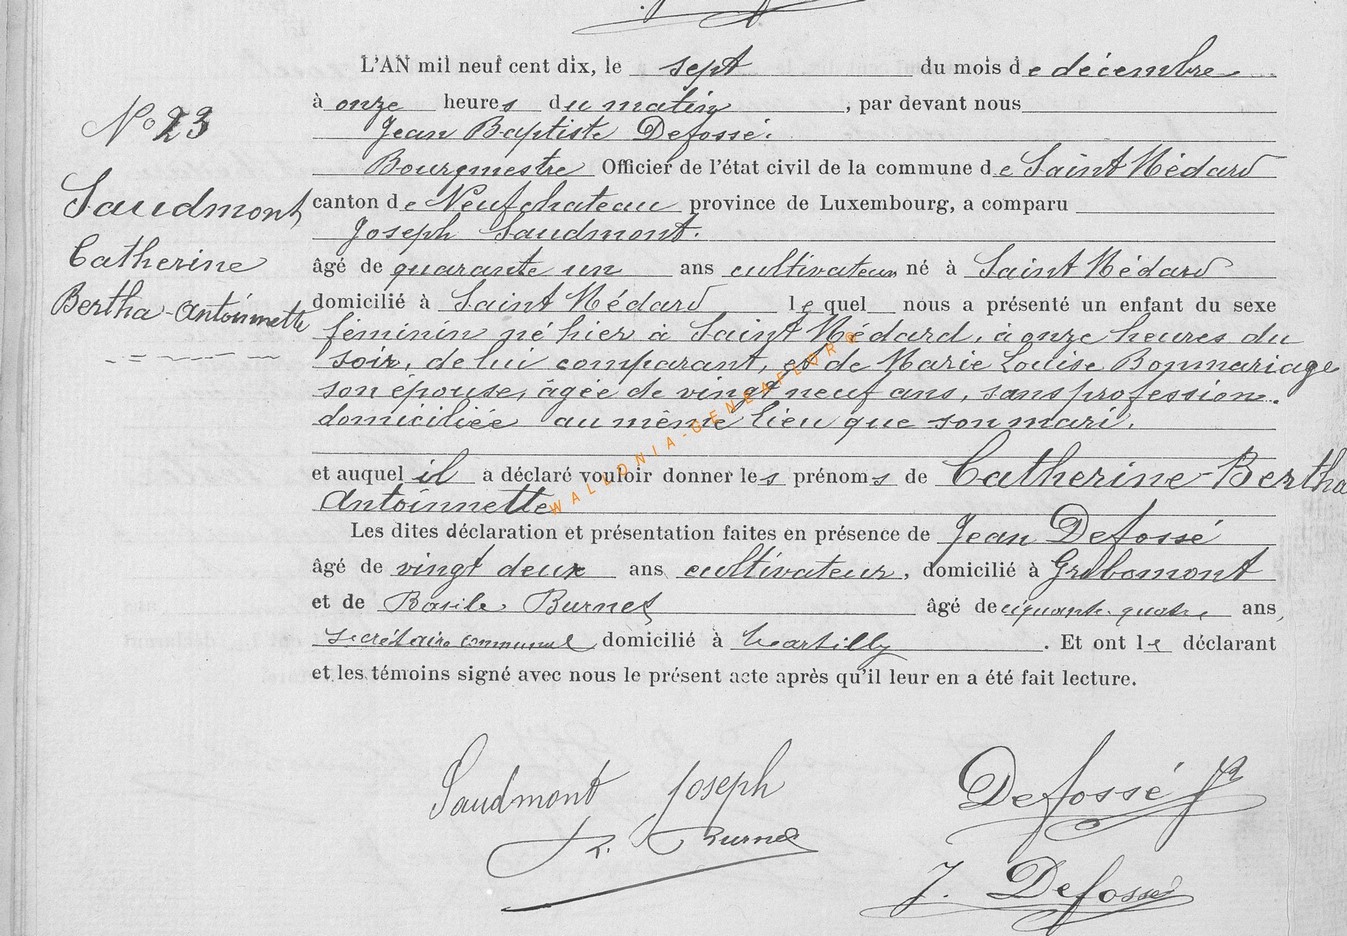 L'AN mil neuf cent dix, le sept du mois de décembre
à onze heures du matin, par devant nous
Jean Baptiste Defossé.
Bourgmestre Officier de l'état civil de la commune de Saint Médard
canton de Neufchateau province de Luxembourg, a comparu
Joseph Saudmont.
âgé de quarante un ans cultivateur né à Saint Médard
domicilié à Saint Médard lequel nous a présenté un enfant du sexe
féminin né hier à Saint Médard, à onze heures du
soir, de lui comparant, et de Marie Louise Bonmariage
son épouse, âgée de vingt neuf ans, sans profession.
domiciliée au même lieu que son mari.
et auquel il a déclaré vouloir donner les prénoms de Catherine-Bertha
Antoinnette
Les dites déclaration et présentation faites en présence de Jean Defossé
âgé de vingt deux ans cultivateur, domicilié à Gribomont
et de Basile Burnet âgé de cinquante quatre ans,
secrétaire communal domicilié à Martilly. Et ont le déclarant
et les témoins signé avec nous le présent acte après qu'il leur en a été fait lecture.
No 23
Saudmont
Catherine
Bertha-Antoinnette
WALLONIA-GENENFLORO
Saudmont Joseph
Defossé
R. Burnet
J. Defossé